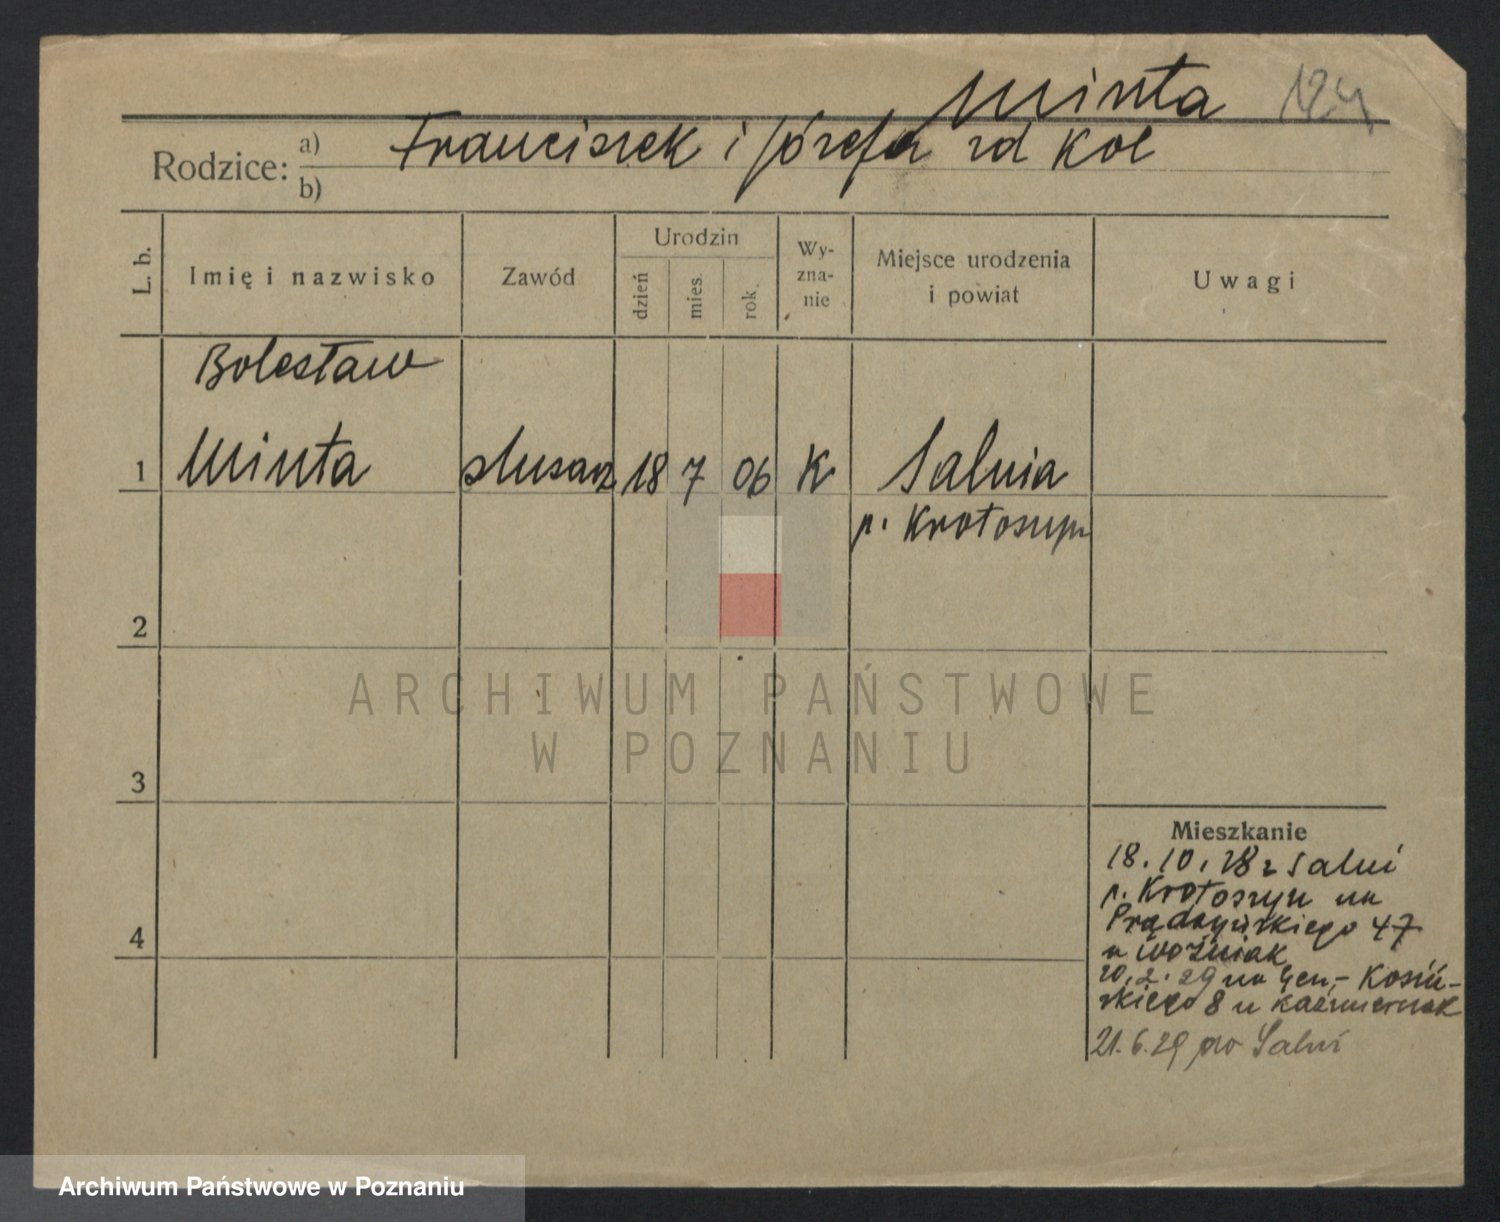 Minta 124
Rodzice: a) Franciszek i Józefa zd Kol
b)
L. b.
Imię i nazwisko
Zawód
Urodzin
dzień
mies.
rok.
Wy-
zna-
nie
Miejsce urodzenia
i powiat
Uwagi
Bolesław
1 Minta ślusarz 18 7 06 K Salnia
p. Krotoszyn
2
3
4
Mieszkanie
18.10.28 z Salni
p. Krotoszyn na
Prądzyńskiego 47
u Woźniak
20.2.29 na Gen.- Kosiń-
skiego 8 u Kaźmierczak
21.6.29 do Salni
ARCHIWUM PAŃSTWOWE
W POZNANIU
Archiwum Państwowe w Poznaniu